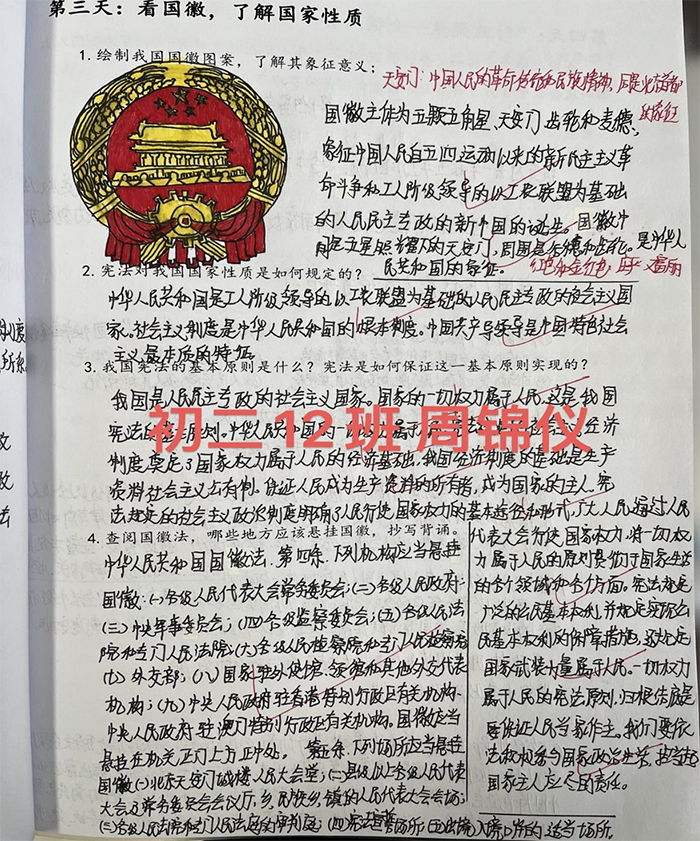 第三天：看国徽，了解国家性质
1. 绘制我国国徽图案，了解其象征意义；
天安门：中国人民的革命传统和民族精神，同是北京首都
的象征
国徽主体为五颗五角星、天安门、齿轮和麦穗，
象征中国人民自五四运动以来的新民主主义革
命斗争和工人阶级领导的以工农联盟为基础
的人民民主专政的新中国的诞生。国徽中
间是五星照耀下的天安门，周围是谷穗和齿轮。是中华人
民共和国的象征。
2. 宪法对我国国家性质是如何规定的？
中华人民共和国是工人阶级领导的以工农联盟为基础的人民民主专政的社会主义国
家。社会主义制度是中华人民共和国的根本制度。中国共产党领导是中国特色社会
主义最本质的特征。
3. 我国宪法的基本原则是什么？宪法是如何保证这一基本原则实现的？
我国是人民民主专政的社会主义国家。国家的一切权力属于人民，这是我国
宪法的基本原则。中华人民共和国的一切权力属于
经济
制度奠定了国家权力属于人民的经济基础，我国经济制度的基础是生产
资料社会主义公有制。保证人民成为生产资料的所有者，成为国家的主人。宪
法规定的社会主义政治制度明确了人民行使国家权力的基本途径和形式，广大人民通过人
初二12班 周锦仪
4. 查阅国徽法，哪些地方应该悬挂国徽，抄写背诵。
中华人民共和国国徽法，第四条，下列机构应当悬挂
国徽：(一)各级人民代表大会常务委员会；(二)各级人民政府；
(三)中央军事委员会；(四)各级监察委员会；(五)各级人民法
院和专门人民法院；(六)各级人民检察院和专门人民检察院
(七)外交部；(八)国家驻外使馆、领馆和其他外交代表
机构；(九)中央人民政府驻香港特别行政区有关机构、
中央人民政府驻澳门特别行政区有关机构。国徽应当
悬挂在机关正门上方正中处。第五条，下列场所应当悬挂
国徽(一)北京天安门城楼、人民大会堂；(二)县级以上各级人民代表
大会及常务委员会会议厅，乡、民族乡、镇的人民代表大会会场；
(三)各级人民法院和专门人民法庭的审判庭；(四)宪法宣誓场所；(五)出境入境口岸的适当场所。
代表大会行使国家权力，将一切权
力属于人民的原则贯彻于国家生活
的各个领域和各个方面。宪法规定
广泛的公民基本权利，并规定实现公
民基本权利的保障措施。
国家武装力量属于人民。一切权力
属于人民的宪法原则，归根结底是
要保证人民当家作主。我们要依
法积极参与国家政治生活，
国家主人应尽的责任。